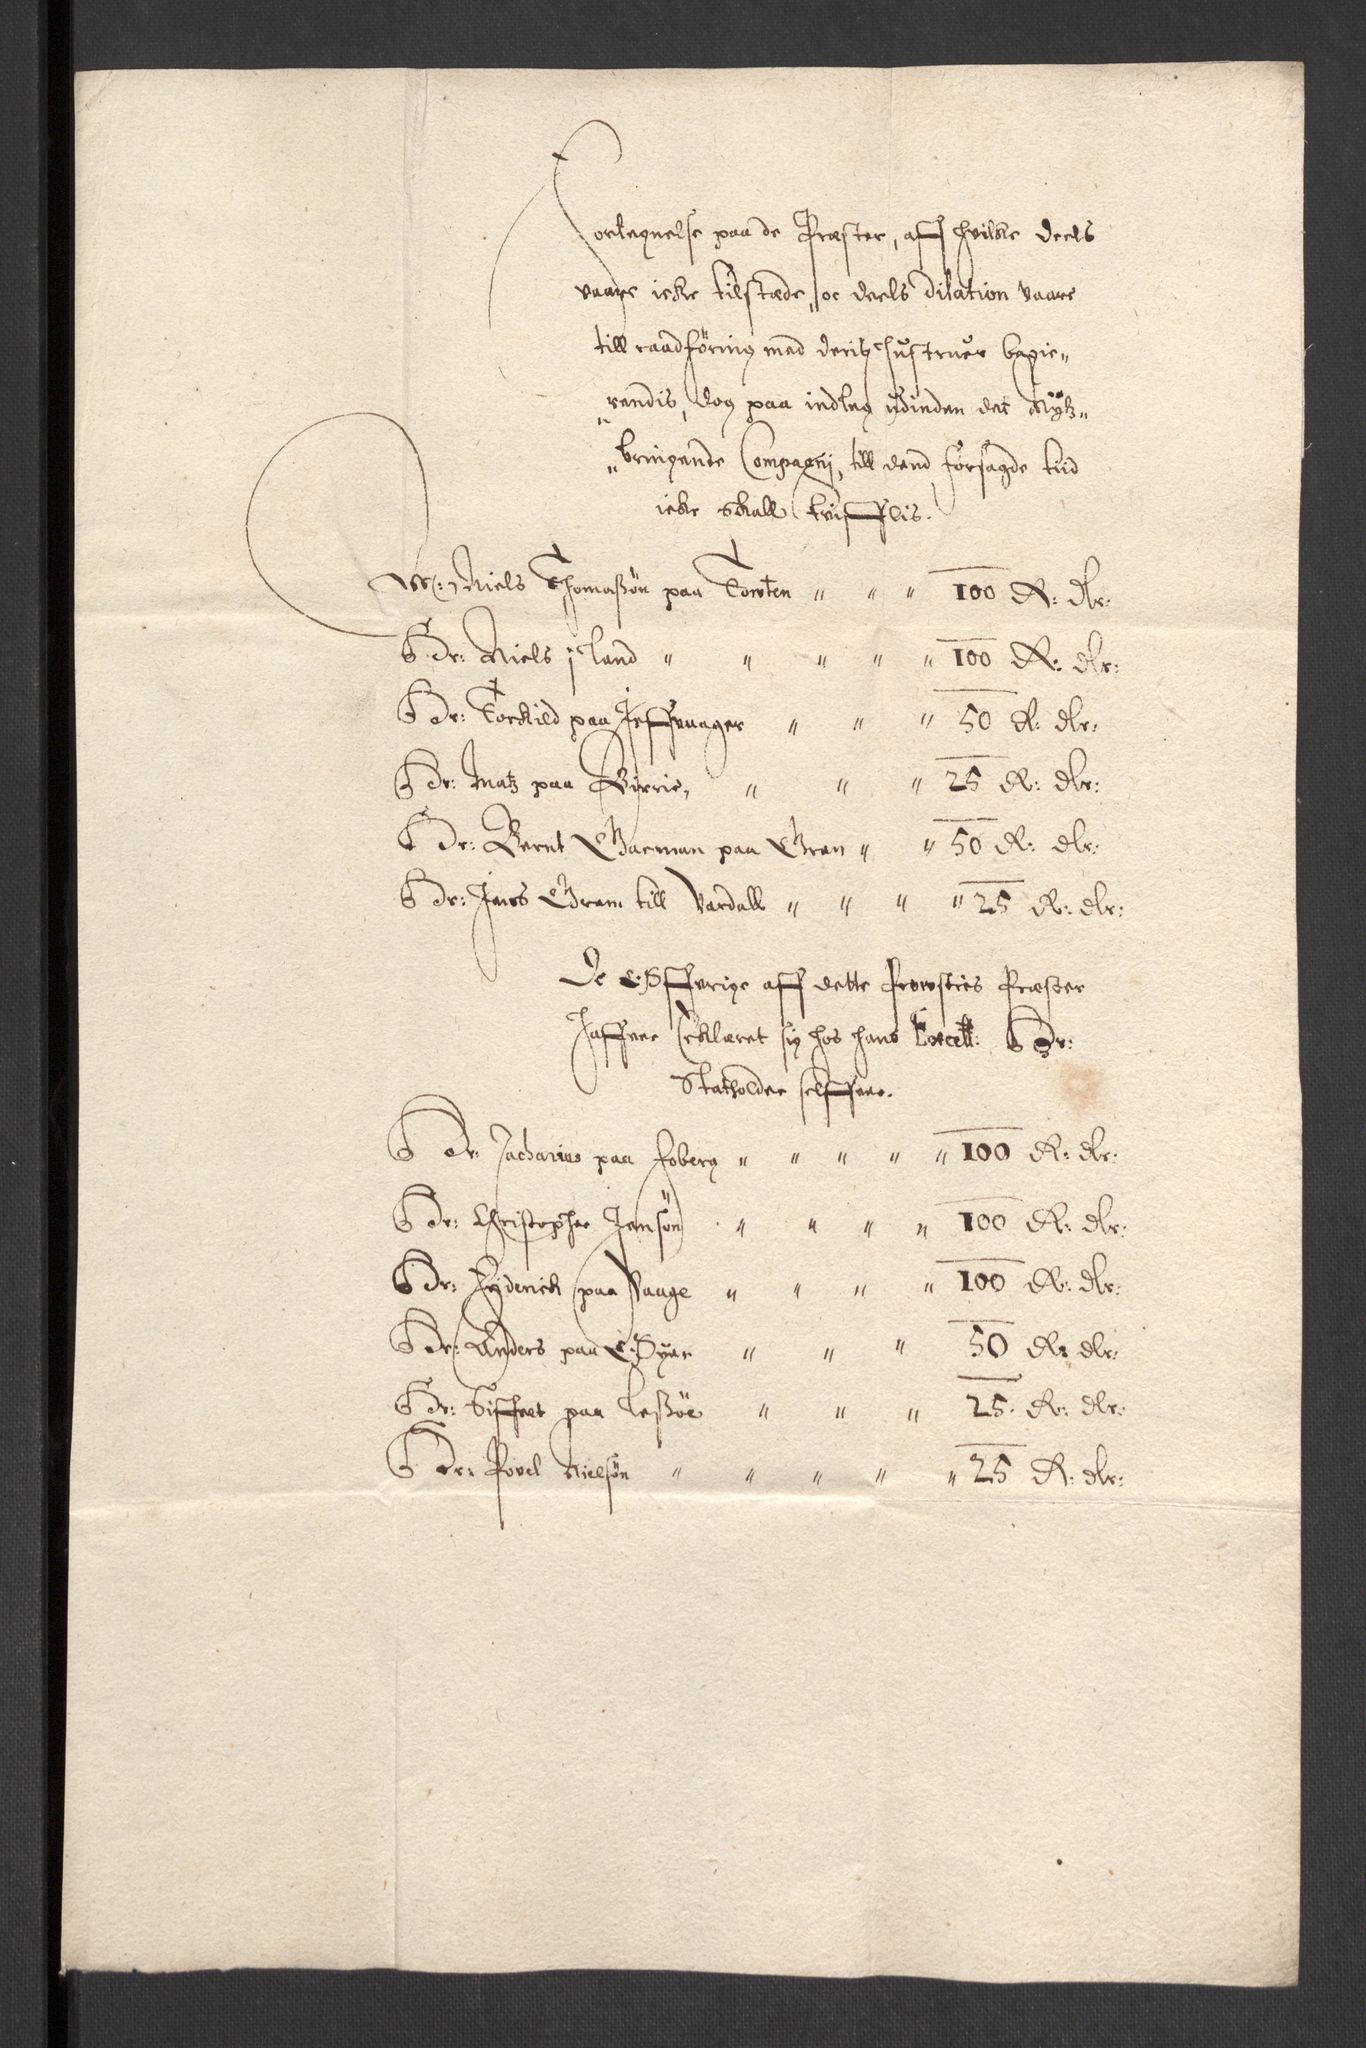 Fortegnelse paa de Præster, aff hvilke deels
vaare icke tilstæde, oc deels dilation vaare
till raadføring med deris Hustruer begie„
„rendis, dog paa indleg udinden det Nytz„
„bringende Compagnj, till dend forsagde tiid
icke skall tuifflis.
M: Niels Thomassön paa Toroten „ „ „ 100 R: dlr:
Hr: Niels j Land „ „ „ „ „ 100 R: dlr:
Hr: Torkild paa Jeffnager „ „ „ 50 R: dlr:
Hr: Matz paa Birrie, „ „ „ 25 R: dlr:
Hr: Bernt Garman paa Gran „ „ 50 R: dlr:
Hr: Jens Gram till Vardall „ „ „ „ 25 R: dlr:
De Øffverige aff dette Prowsties Præster
haffuer Erklæret sig hos hans Excell: Hr:
Statholder selffuer.
Hr: Zacharias paa Foberg „ „ „ „ „ 100 R: dlr:
Hr: Christopher Jensön „ „ „ „ 100 R: dlr:
Hr: Fyderich paa Vaage „ „ „ „ 100 R: dlr:
Hr: Anders paa Øyer „ „ „ 50 R: dlr:
Hr: Siffuert paa Lessöe „ „ „ 25. R: dlr:
Hr: Povel Nielsön „ „ „ „ „ 25 R: dlr: